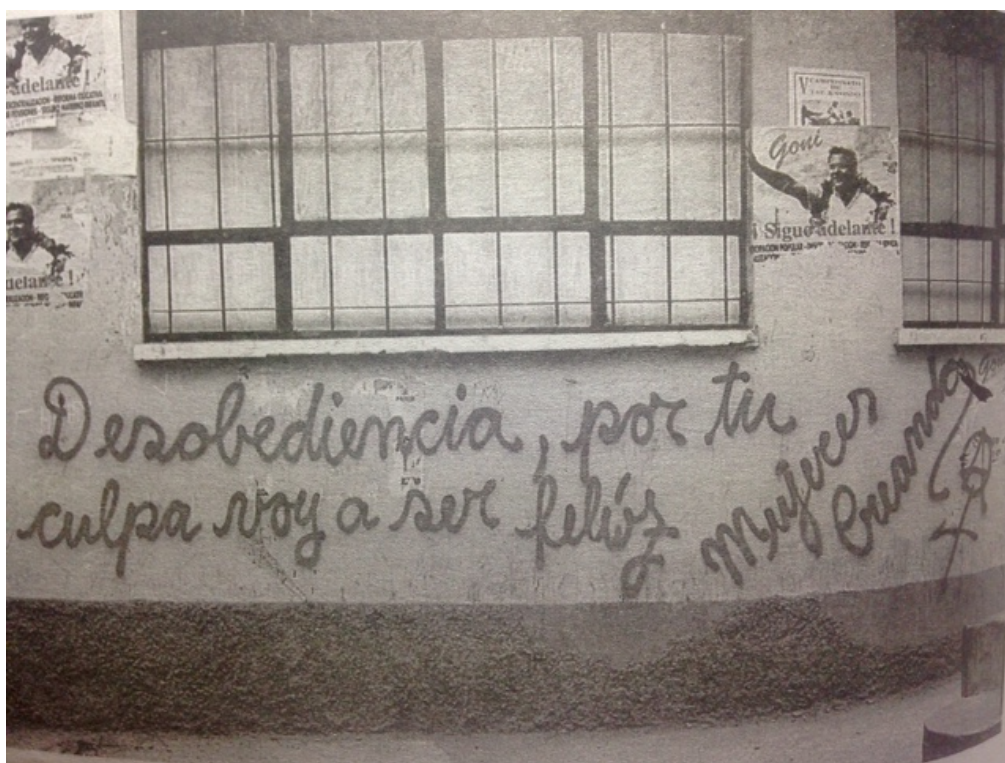 adelante !
Goni
¡ Sigue adelante !
Desobediencia, por tu
culpa voy a ser felíz
Mujeres
Creando